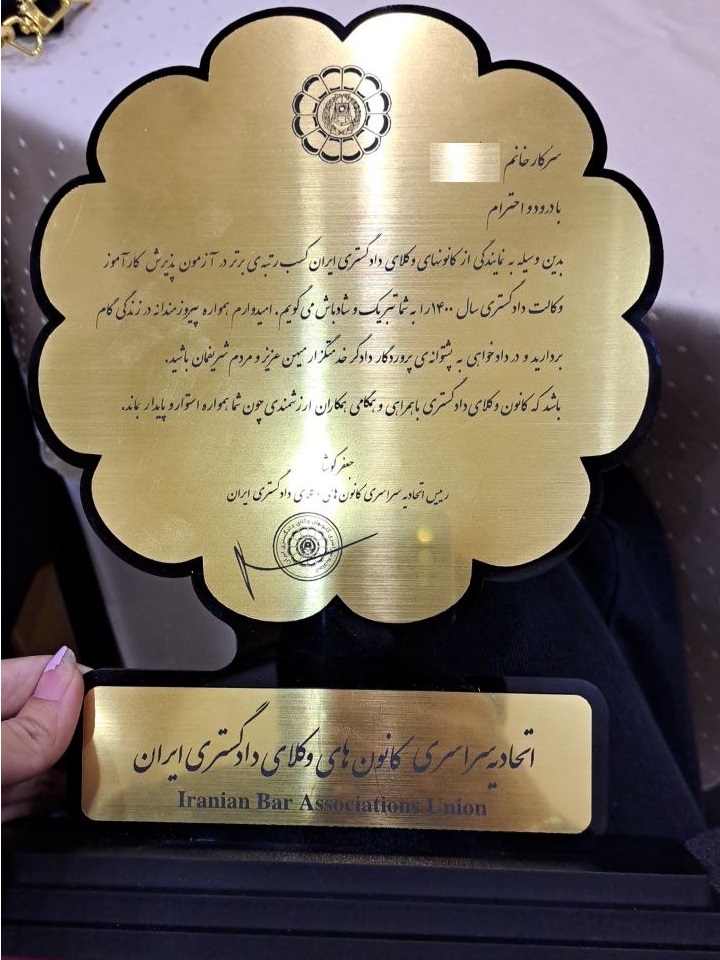 سرکار خانم
با درود و احترام
بدین وسیله به نمایندگی از کانونهای وکلای دادگستری ایران کسب رتبه‌ی برتر در آزمون پذیرش کارآموز
وکالت دادگستری سال ۱۴۰۰ را به شما تبریک و شادباش می گویم. امیدوارم همواره پیروزمندانه در زندگی گام
بردارید و در دادخواهی به پشتوانه‌ی پروردگار دادگر خدمتگزار میهن عزیز و مردم شریفمان باشید.
باشد که کانون وکلای دادگستری با همراهی و همگامی همکاران ارزشمندی چون شما همواره استوار و پایدار بماند.
جعفر کوشا
رییس اتحادیه سراسری کانون های وکلای دادگستری ایران
اتحادیه سراسری کانون های وکلای دادگستری ایران
Iranian Bar Associations Union